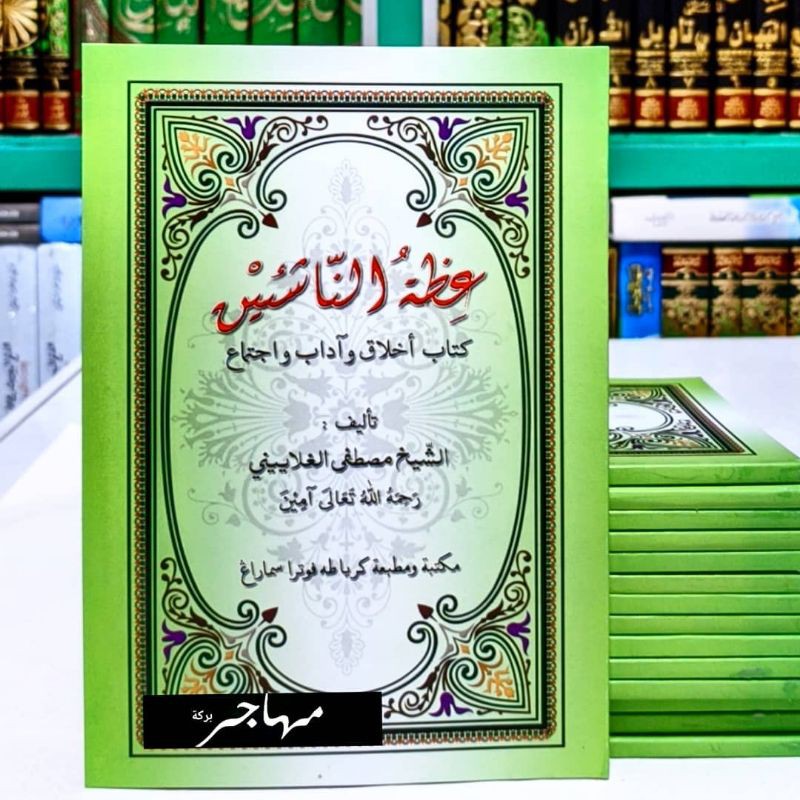 البيان في تأويل القرآن
عِظَةُ النَّاشِئِيْنَ
كتاب أخلاق وآداب واجتماع
تأليف :
الشّيخ مصطفى الغلاييني
رَحِمَهُ اللهُ تَعَالَى آمِيْنَ
مكتبة ومطبعة كرياطه فوترا سماراڠ
مهاجر بركة